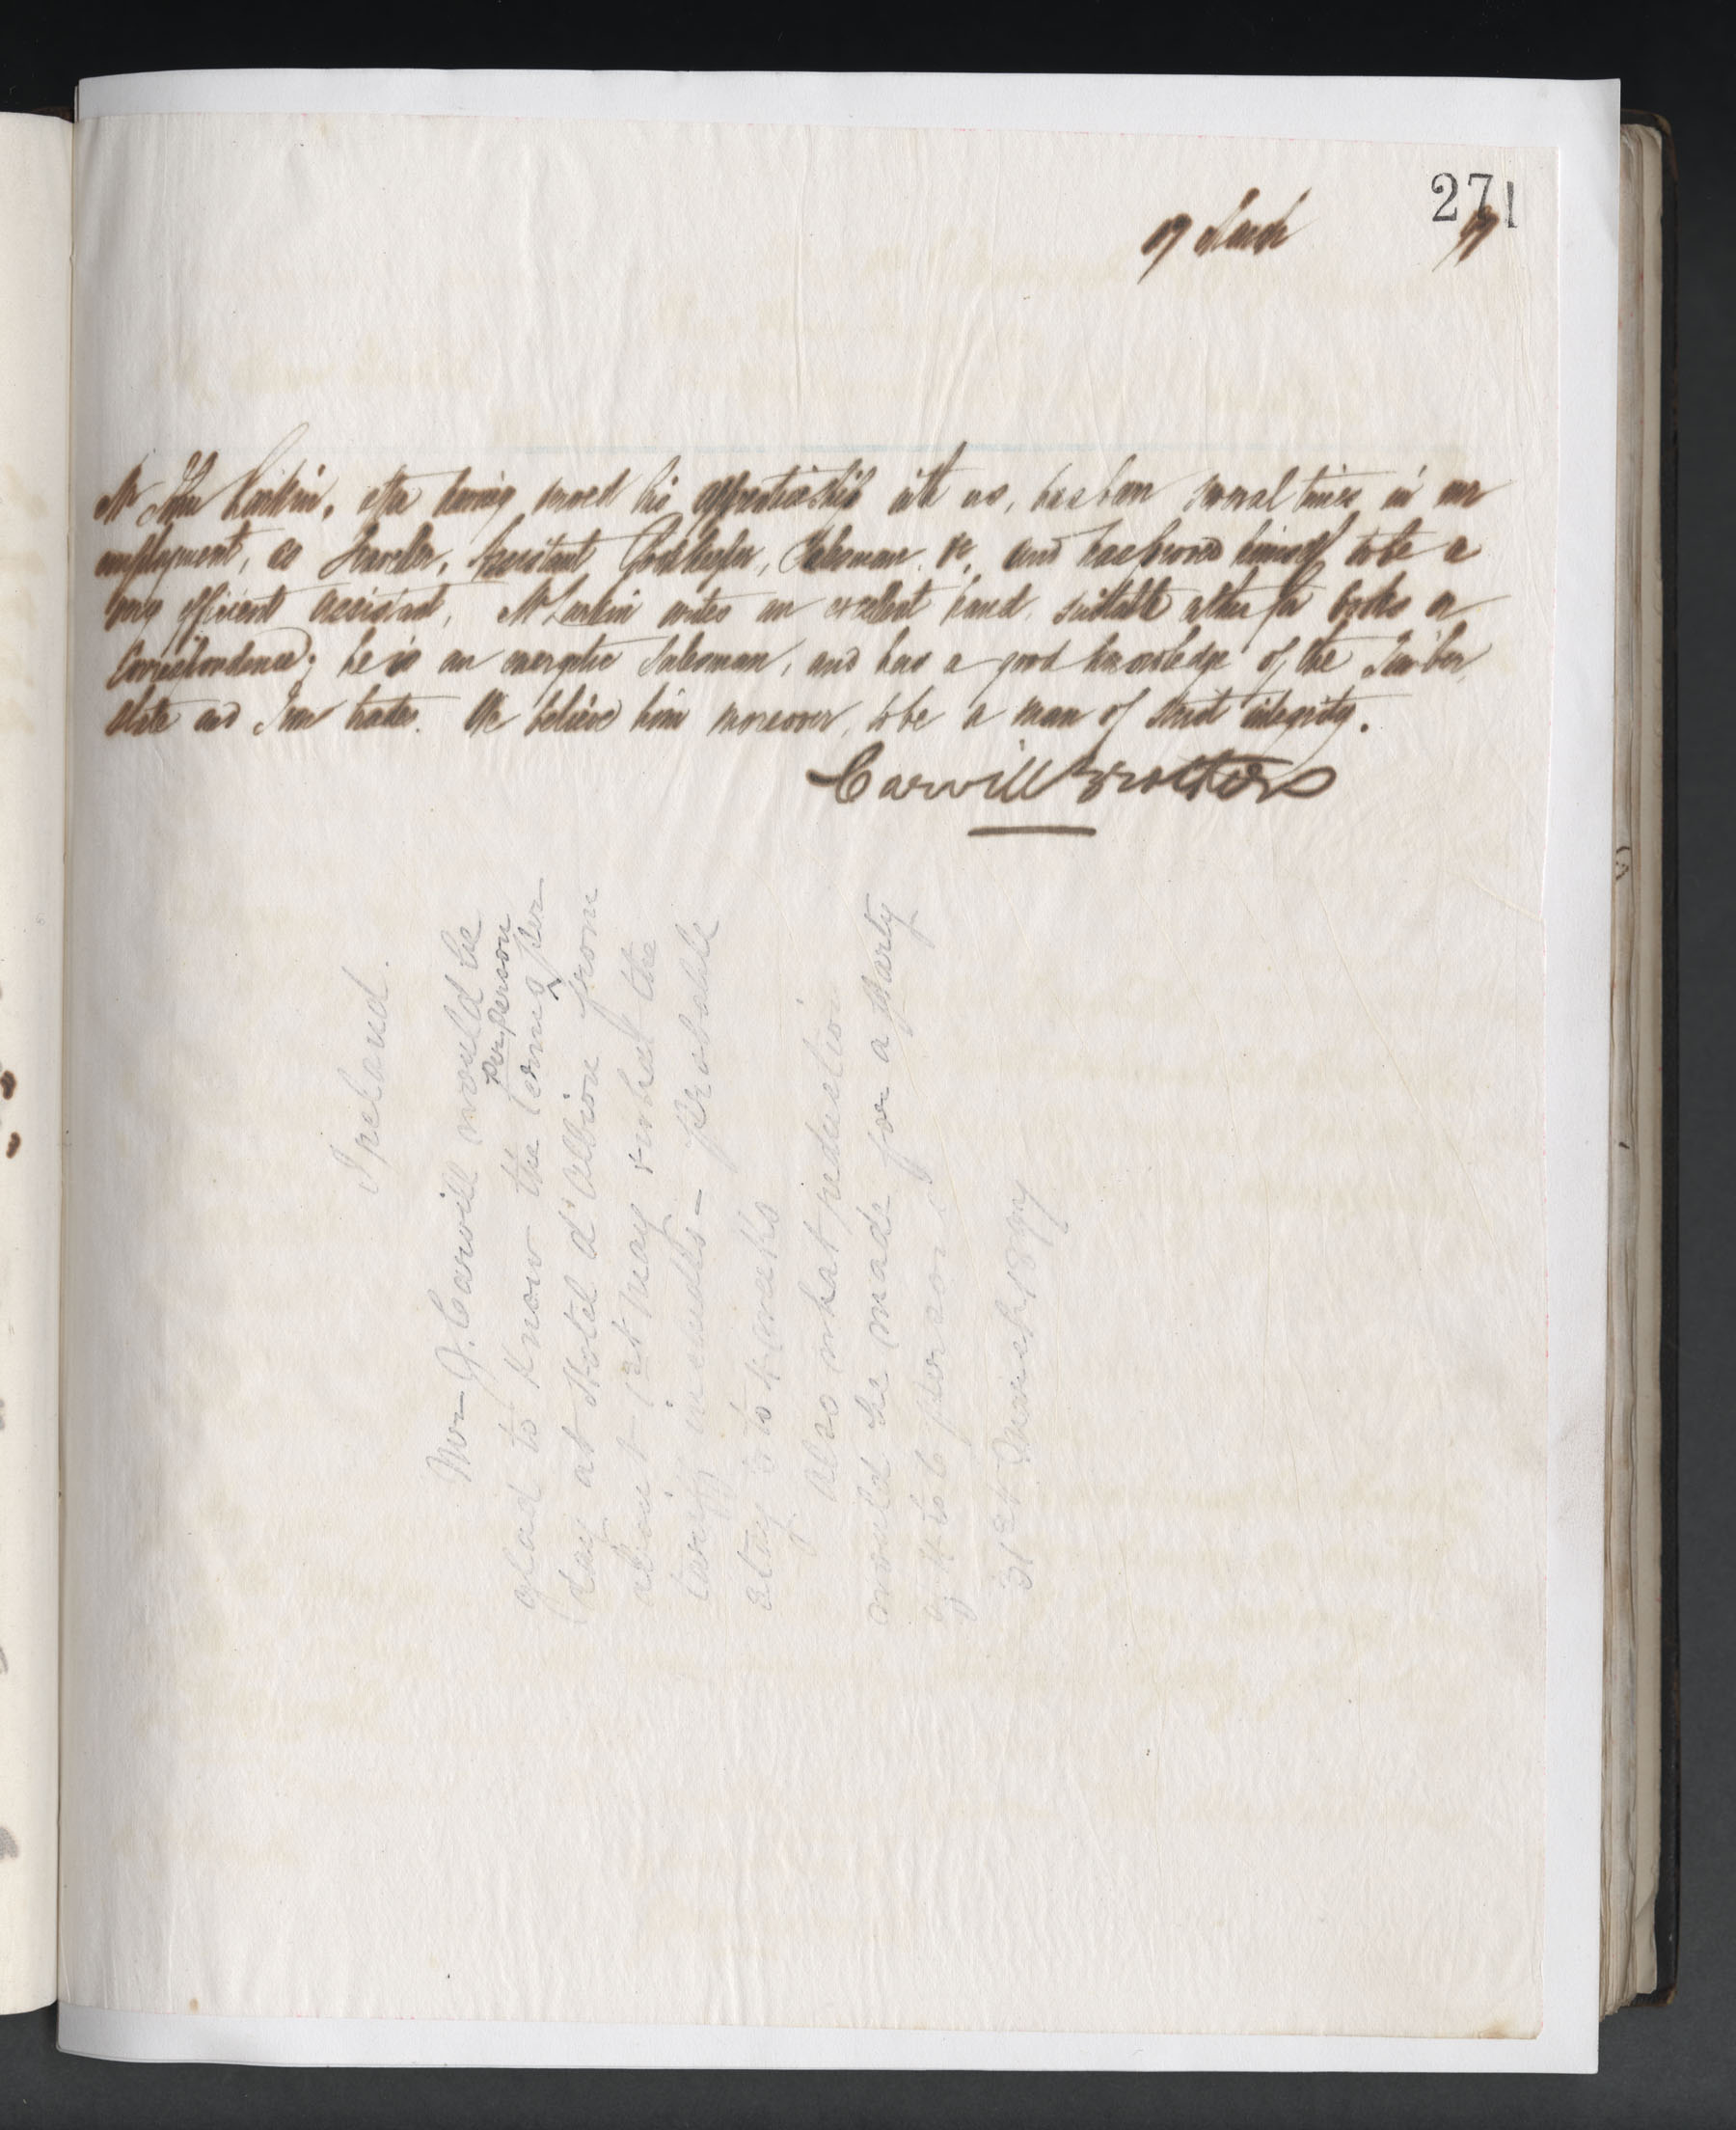 271
19 March 97
Mr John Larkin, after having served his apprenticeship with us, has been several times in our
employment, as Traveller, Assistant Bookkeeper, Salesman, &c, and has proved himself to be a
very efficient assistant, Mr Larkin writes an excellent hand, suitable either for books or
Correspondence; he is an energetic Salesman, and has a good knowledge of the Timber,
Slate and Iron trades. We believe him moreover, to be a man of strict integrity.
Carvill Brothers
Ireland.
Mr J. Carvill would be
per person
glad to know the terms ^ per
day at Hotel d'Albion from
about 1st May & what the
tariff includes - probable
stay 3 to 4 weeks
Also what reduction
would be made for a party
of 4 to 6 persons
31st March 1897